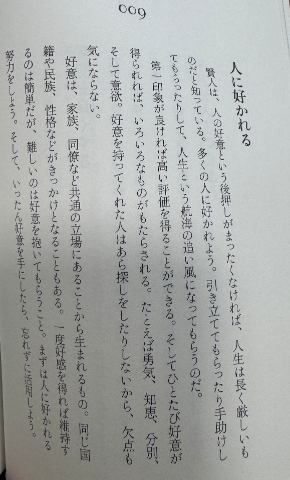 009
人に好かれる
賢人は、人の好意という後押しがまったくなければ、人生は長く厳しいも
のだと知っている。多くの人に好かれよう。引き立ててもらったり手助けし
てもらったりして、人生という航海の追い風になってもらうのだ。
第一印象が良ければ高い評価を得ることができる。そしてひとたび好意が
得られれば、いろいろなものがもたらされる。たとえば勇気、知恵、分別、
そして意欲。好意を持ってくれた人はあら探しをしたりしないから、欠点も
気にならない。
好意は、家族、同僚など共通の立場にあることから生まれるもの。同じ国
籍や民族、性格などがきっかけとなることもある。一度好感を得れば維持す
るのは簡単だが、難しいのは好意を抱いてもらうこと。まずは人に好かれる
努力をしよう。そして、いったん好意を手にしたら、忘れずに活用しよう。